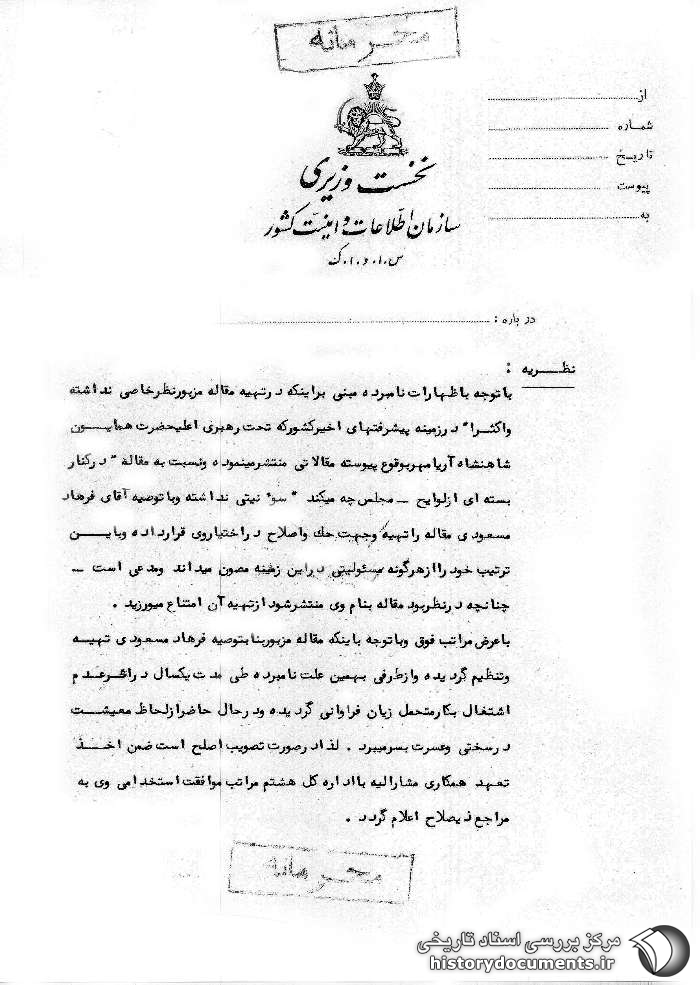 محرمانه
از
شماره
تاریخ
پیوست
به
نخست وزیری
سازمان اطلاعات و امنیت کشور
س.ا.و.ا.ک
درباره :
نظریه :
با توجه باظهارات نامبرده مبنی براینکه درتهیه مقاله مزبورنظرخاصی نداشته
واکثرا" درزمینه پیشرفتهای اخیرکشورکه تحت رهبری اعلیحضرت همایون
شاهنشاه آریامهربوقوع پیوسته مقالاتی منتشرمینموده ونسبت به مقاله " درکنار
بسته ای ازلوایح - مجلس چه میکند " سو' نیتی نداشته وباتوصیه آقای فرهاد
مسعودی مقاله راتهیه وجهت حك واصلاح دراختیاروی قرارداده وباین
ترتیب خودراازهرگونه مسئولیتی دراین زمینه مصون میداند ومدعی است -
چنانچه درنظربود مقاله بنام وی منتشرشودازتهیه آن امتناع میورزید .
باعرض مراتب فوق وباتوجه باینکه مقاله مزبوربنابتوصیه فرهاد مسعودی تهیه
وتنظیم گردیده وازطرفی بهمین علت نامبرده طی مدت یکسال دراثرعدم
اشتغال بکارمتحمل زیان فراوانی گردیده ودرحال حاضرازلحاظ معیشت
درسختی وعسرت بسرمیبرد . لذادرصورت تصویب اصلح است ضمن اخذ
تعهد همکاری مشارالیه بااداره کل هشتم مراتب موافقت استخدامی وی به
مراجع ذیصلاح اعلام گردد .
محرمانه
مرکز بررسی اسناد تاریخی
historydocuments.ir